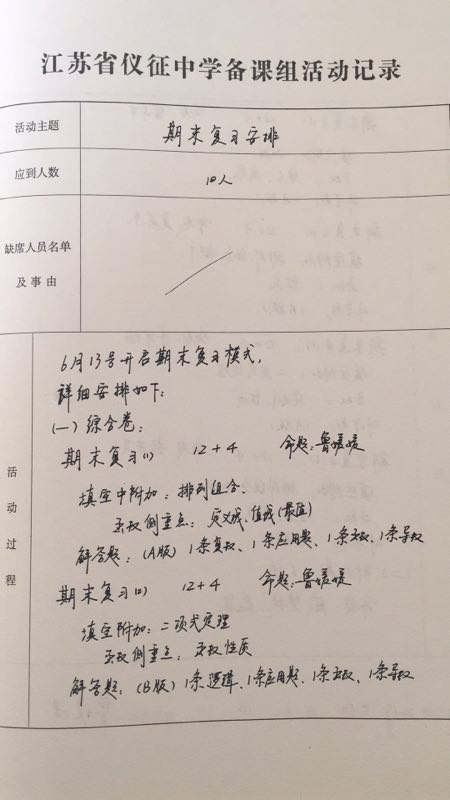 江苏省仪征中学备课组活动记录
活动主题 期末复习安排
应到人数 10人
缺席人员名单
及事由
活动过程
6月13号开启期末复习模式,
详细安排如下:
(一)综合卷:
期末复习(1) 12+4 命题:鲁媛媛
填空中附加:排列组合.
函数侧重点:定义域、值域(最值)
解答题:(A版)1条复数、1条应用题、1条函数、1条导数
期末复习(2) 12+4 命题:鲁媛媛
填空附加:二项式定理
函数侧重点:函数性质
解答题:(B版)1条逻辑、1条应用题、1条函数、1条导数